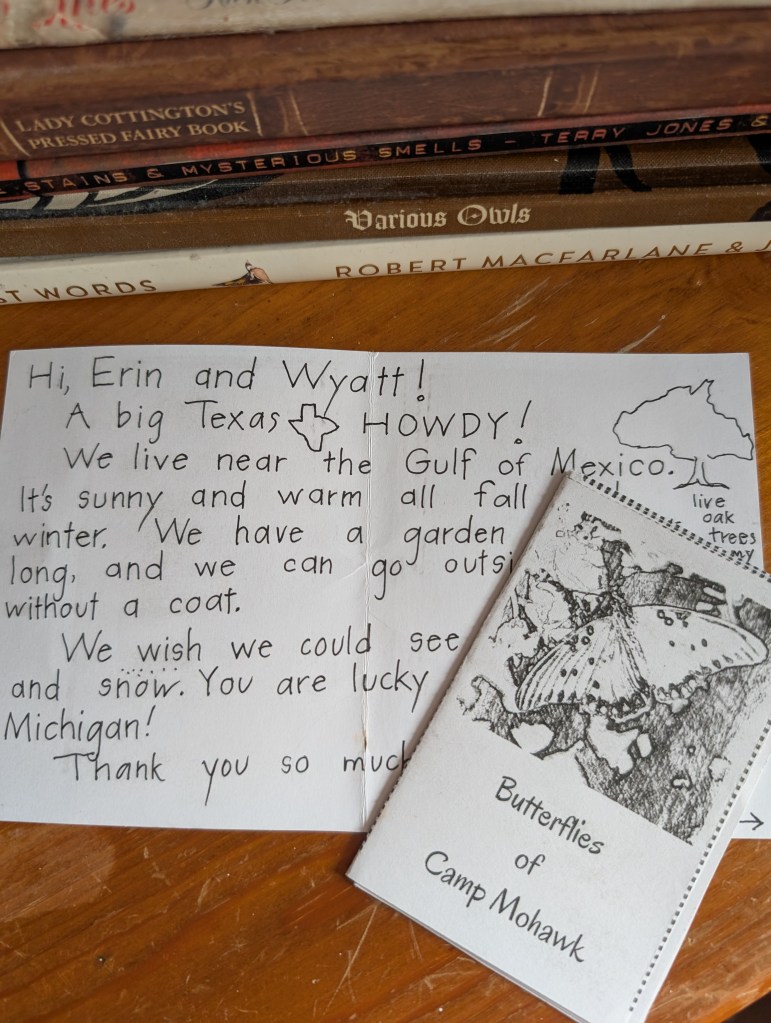 LADY COTTINGTON'S
PRESSED FAIRY BOOK
STAINS & MYSTERIOUS SMELLS - TERRY JONES &
Various Owls
WORDS ROBERT MACFARLANE &
Hi, Erin and Wyatt!
A big Texas HOWDY!
We live near the Gulf of Mexico.
It's sunny and warm all fall
winter. We have a garden
long, and we can go outsi
without a coat.
We wish we could see
and snow. You are lucky
Michigan!
Thank you so much
live
oak
trees
my
→
Butterflies
of
Camp Mohawk